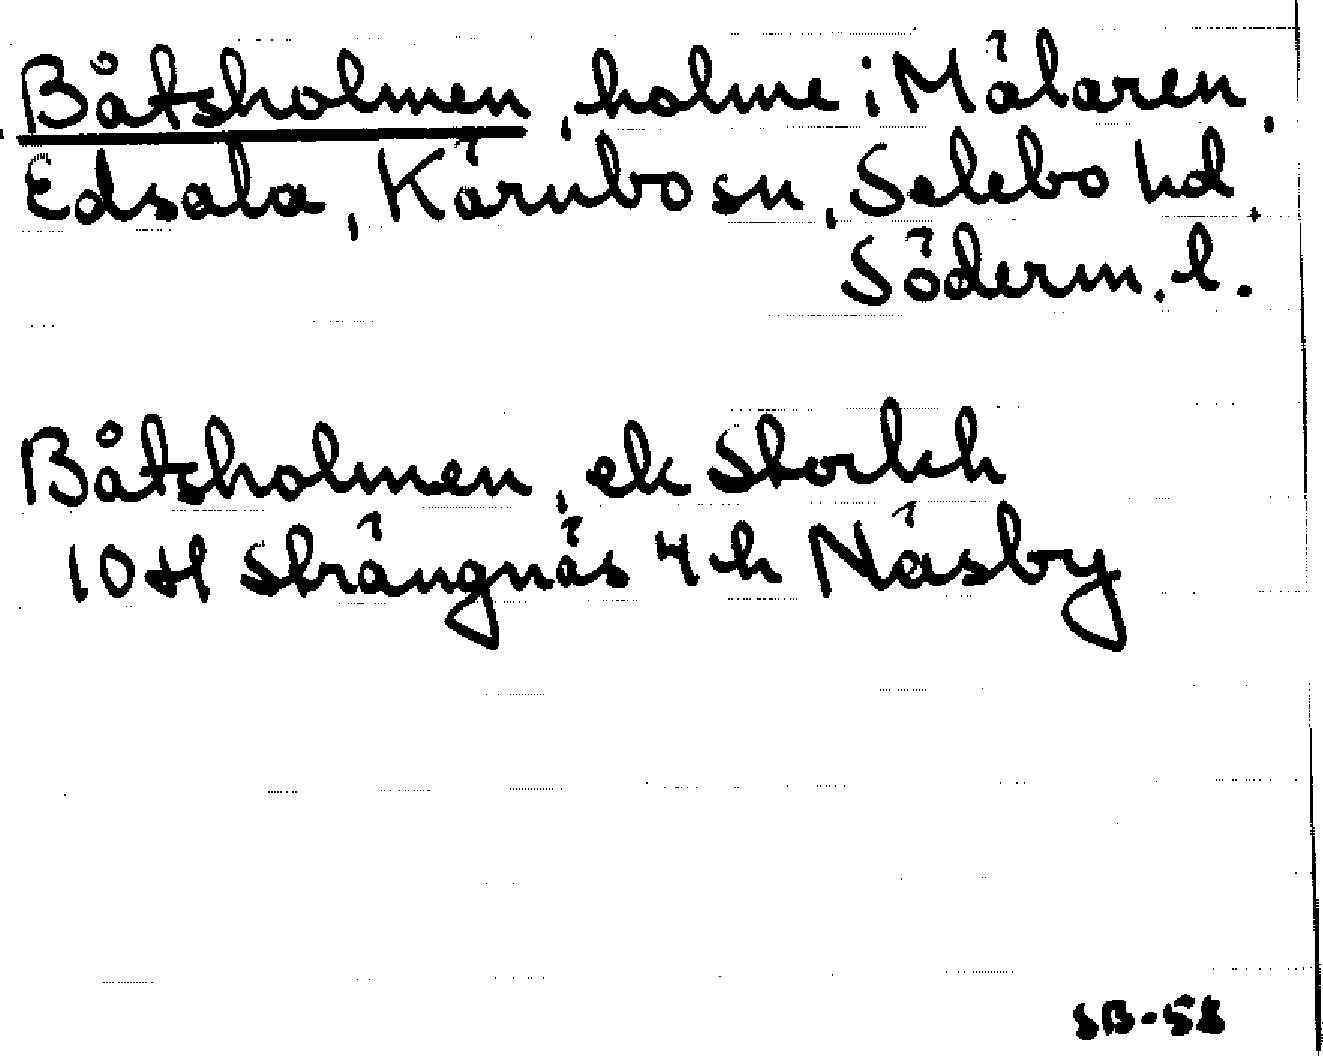 Båtsholmen, holme i Mälaren.
Edsala, Kärnbo sn, Selebo hd.
Söderm. l.
Båtsholmen, ek Storkh
10 H Strängnäs 4 h Näsby
SB-58